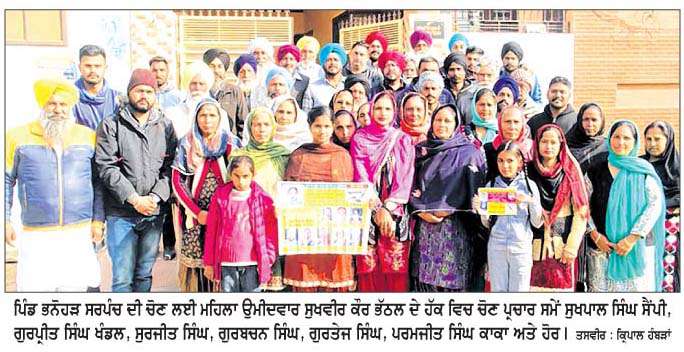 ਪਿੰਡ ਭਨੋਹੜ ਸਰਪੰਚ ਦੀ ਚੋਣ ਲਈ ਮਹਿਲਾ ਉਮੀਦਵਾਰ ਸੁਖਵੀਰ ਕੌਰ ਭੱਠਲ ਦੇ ਹੱਕ ਵਿਚ ਚੋਣ ਪ੍ਰਚਾਰ ਸਮੇਂ ਸੁਖਪਾਲ ਸਿੰਘ ਸੈਂਪੀ,
ਗੁਰਪ੍ਰੀਤ ਸਿੰਘ ਖੰਡਲ, ਸੁਰਜੀਤ ਸਿੰਘ, ਗੁਰਬਚਨ ਸਿੰਘ, ਗੁਰਤੇਜ ਸਿੰਘ, ਪਰਮਜੀਤ ਸਿੰਘ ਕਾਕਾ ਅਤੇ ਹੋਰ। ਤਸਵੀਰ : ਕ੍ਰਿਪਾਲ ਹੰਬੜਾਂ